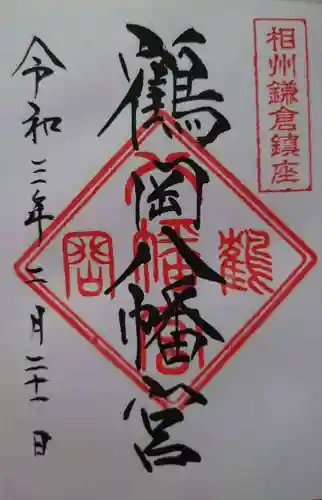 相州鎌倉鎮座
鶴岡八幡宮
鶴
岡
八幡宮
令和三年二月二十一日